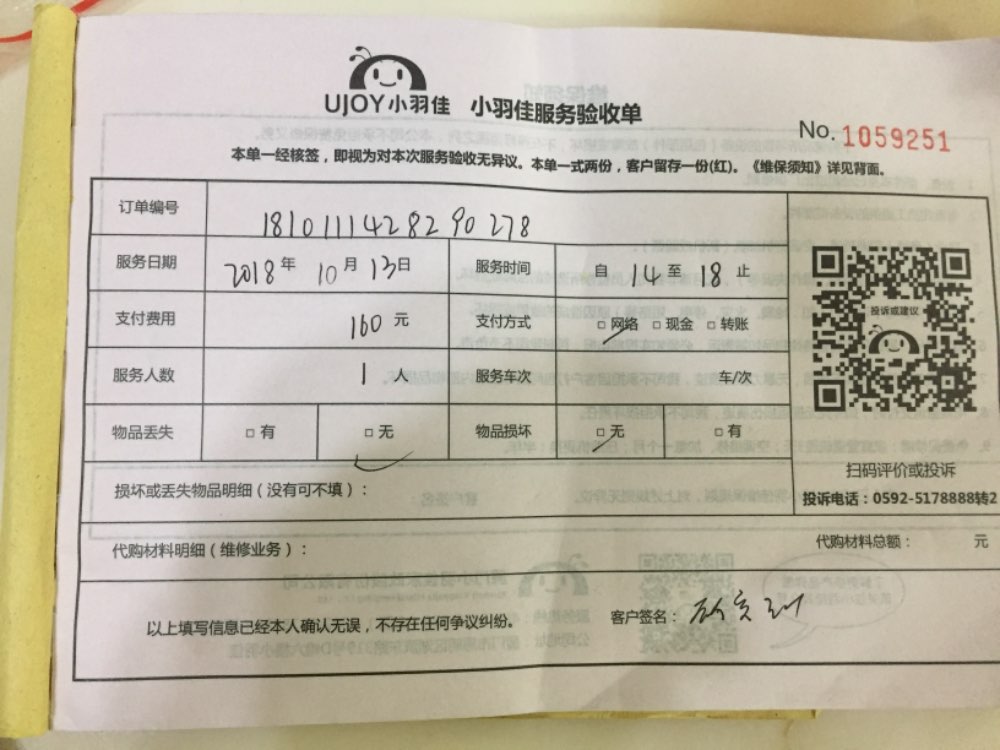 UJOY小羽佳 小羽佳服务验收单
No. 1059251
本单一经核签，即视为对本次服务验收无异议。本单一式两份，客户留存一份(红)。《维保须知》详见背面。
订单编号 1810111428290278
服务日期 2018年10月13日 服务时间 自14至18止
投诉或建议
支付费用 160元 支付方式 □网络 □现金 □转账
服务人数 1人 服务车次 车/次
物品丢失 □有 □无 物品损坏 □无 □有
扫码评价或投诉
损坏或丢失物品明细（没有可不填）：
投诉电话：0592-5178888转2
代购材料明细（维修业务）： 代购材料总额： 元
以上填写信息已经本人确认无误，不存在任何争议纠纷。 客户签名：